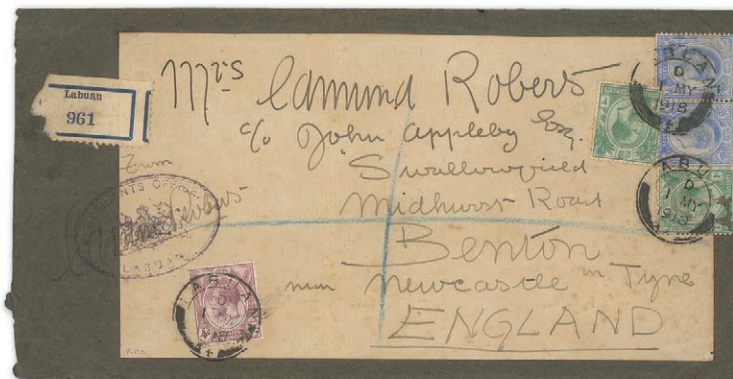 Labuan
961
Mrs Edmund Roberts
c/o John Appleby Esq.
"Swallowfield
Midhurst Road
Benton
near Newcastle on Tyne
ENGLAND
From
LABUAN
LABUAN
D
1 MY
1918
LABUAN
D
1 MY
1918
LABUAN
D
1
R.P.O.